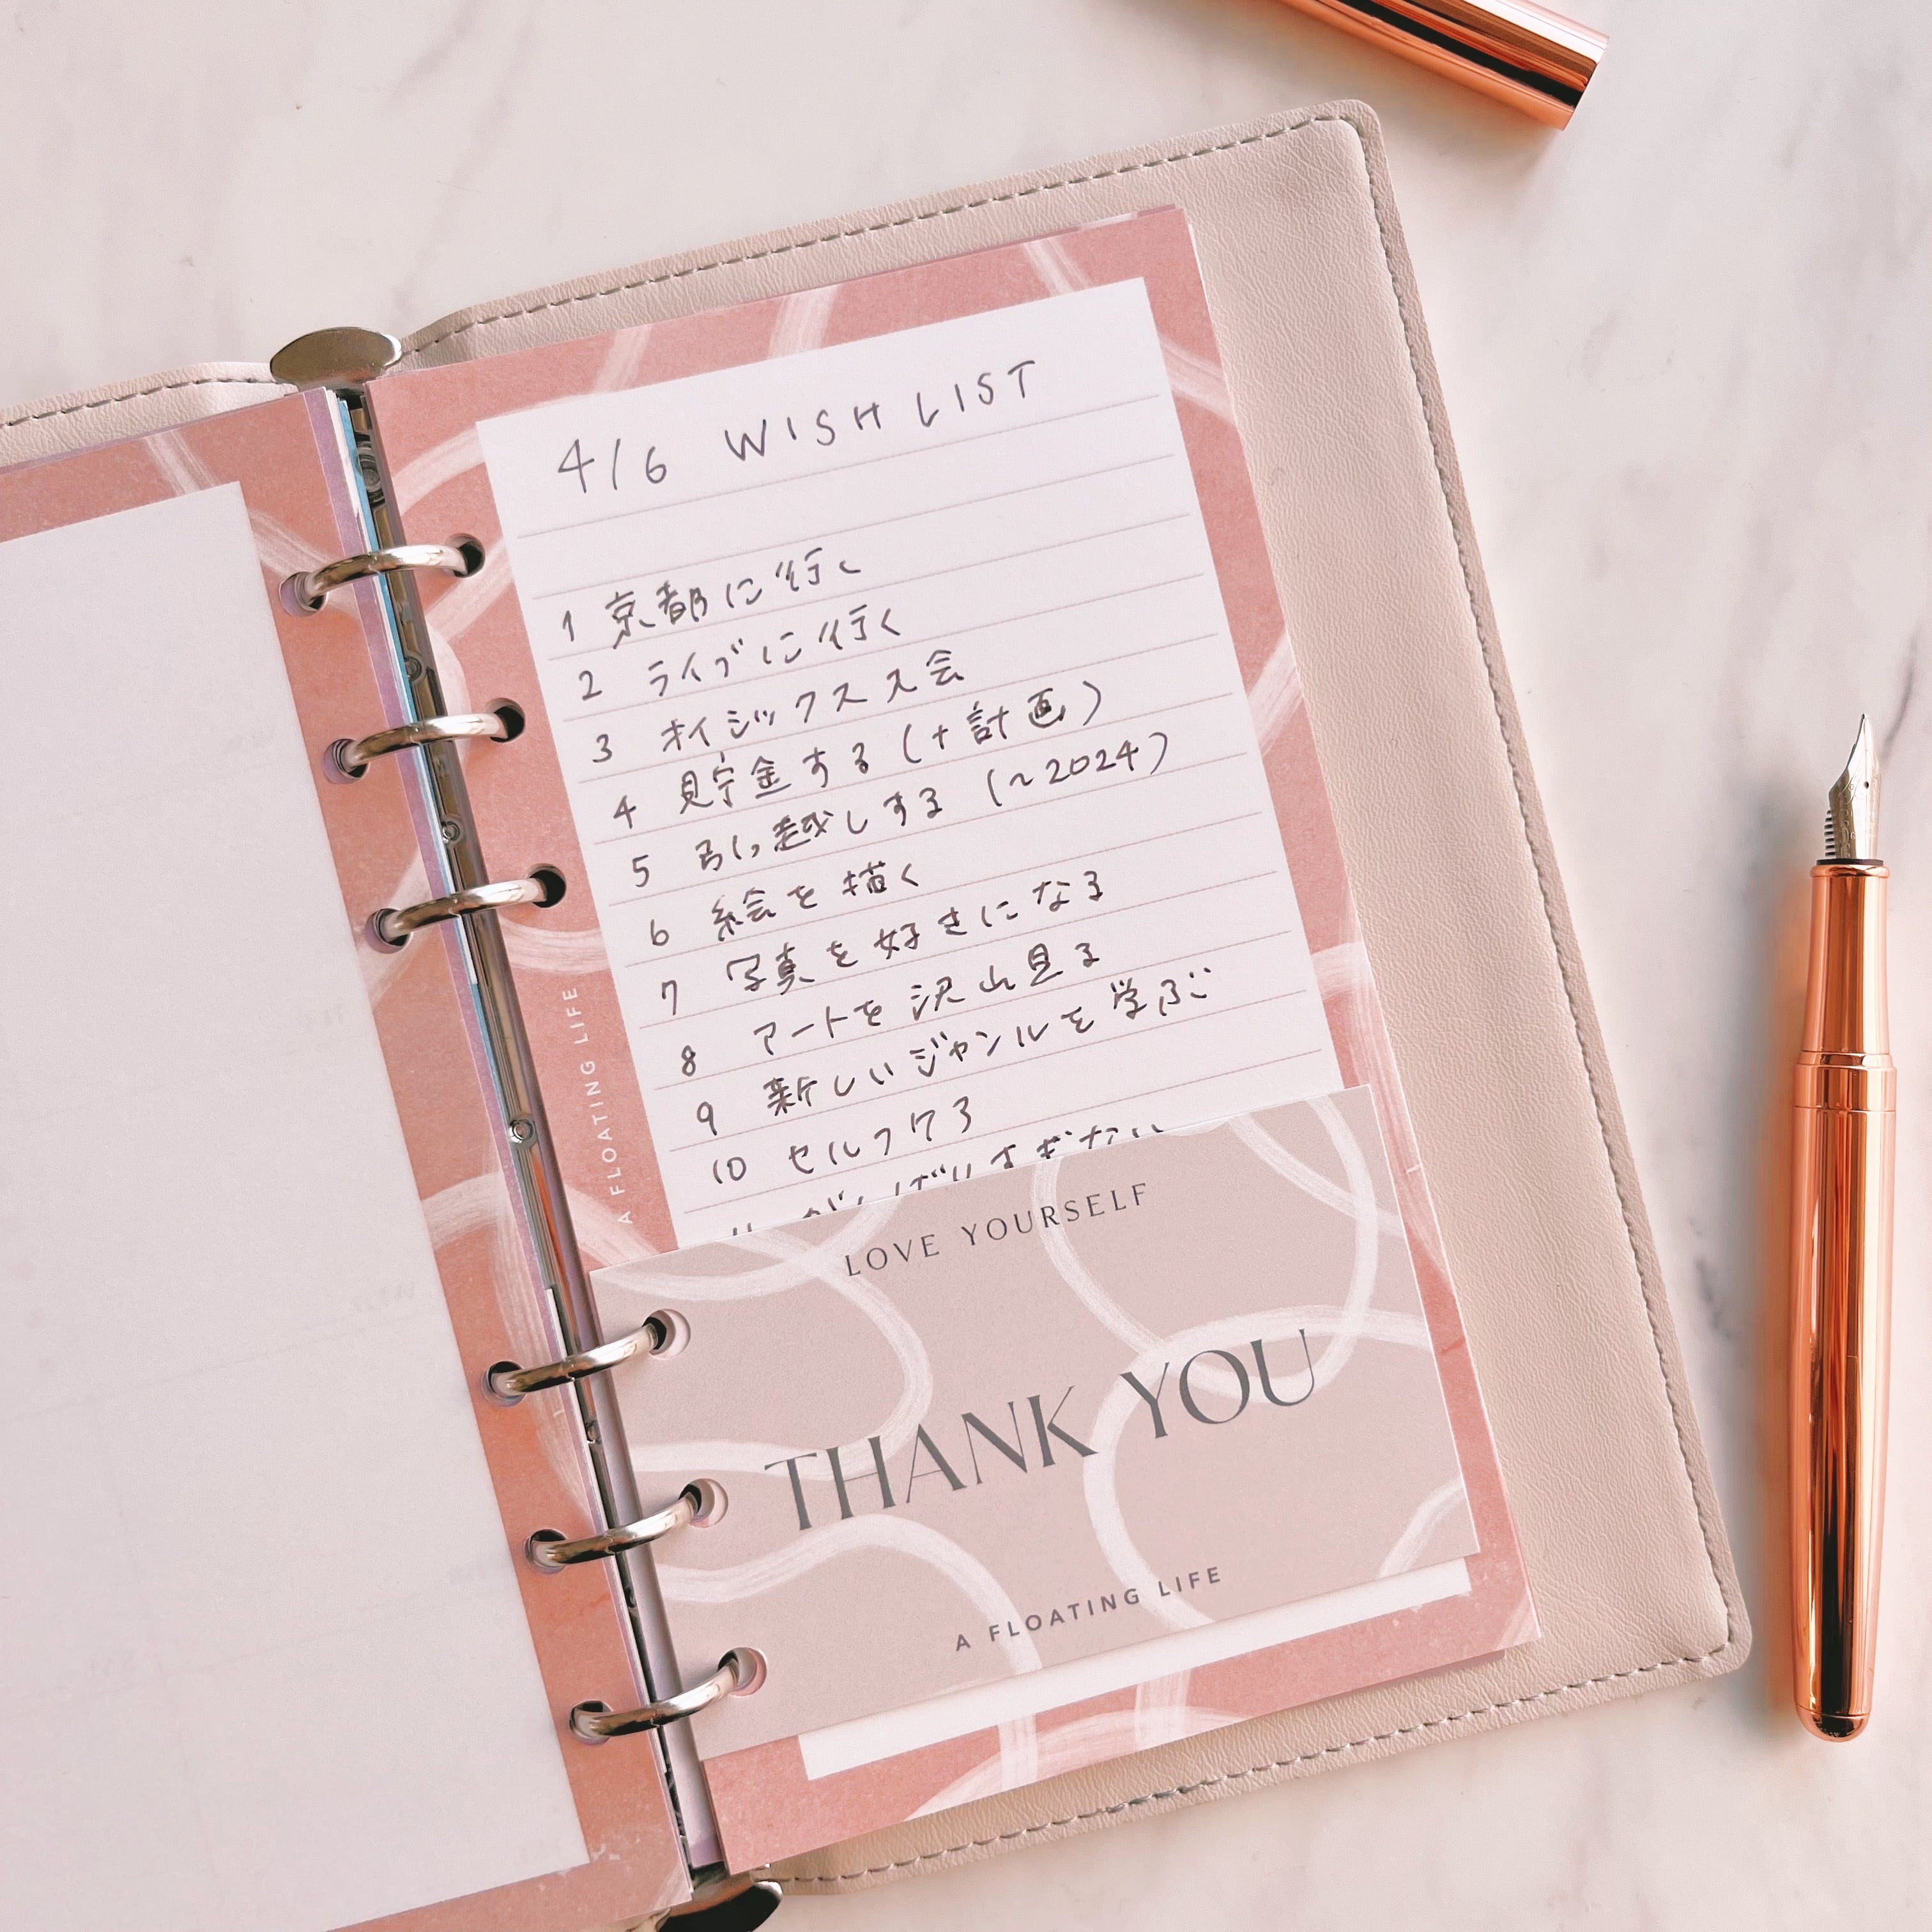 4/6 WISH LIST
1 京都に行く
2 ライブに行く
3 オイシックス入会
4 貯金する (+計画)
5 引っ越しする (~2024)
6 絵を描く
7 写真を好きになる
8 アートを沢山見る
9 新しいジャンルを学ぶ
10 セルフケア
11 がんばりすぎない
A FLOATING LIFE
LOVE YOURSELF
THANK YOU
A FLOATING LIFE